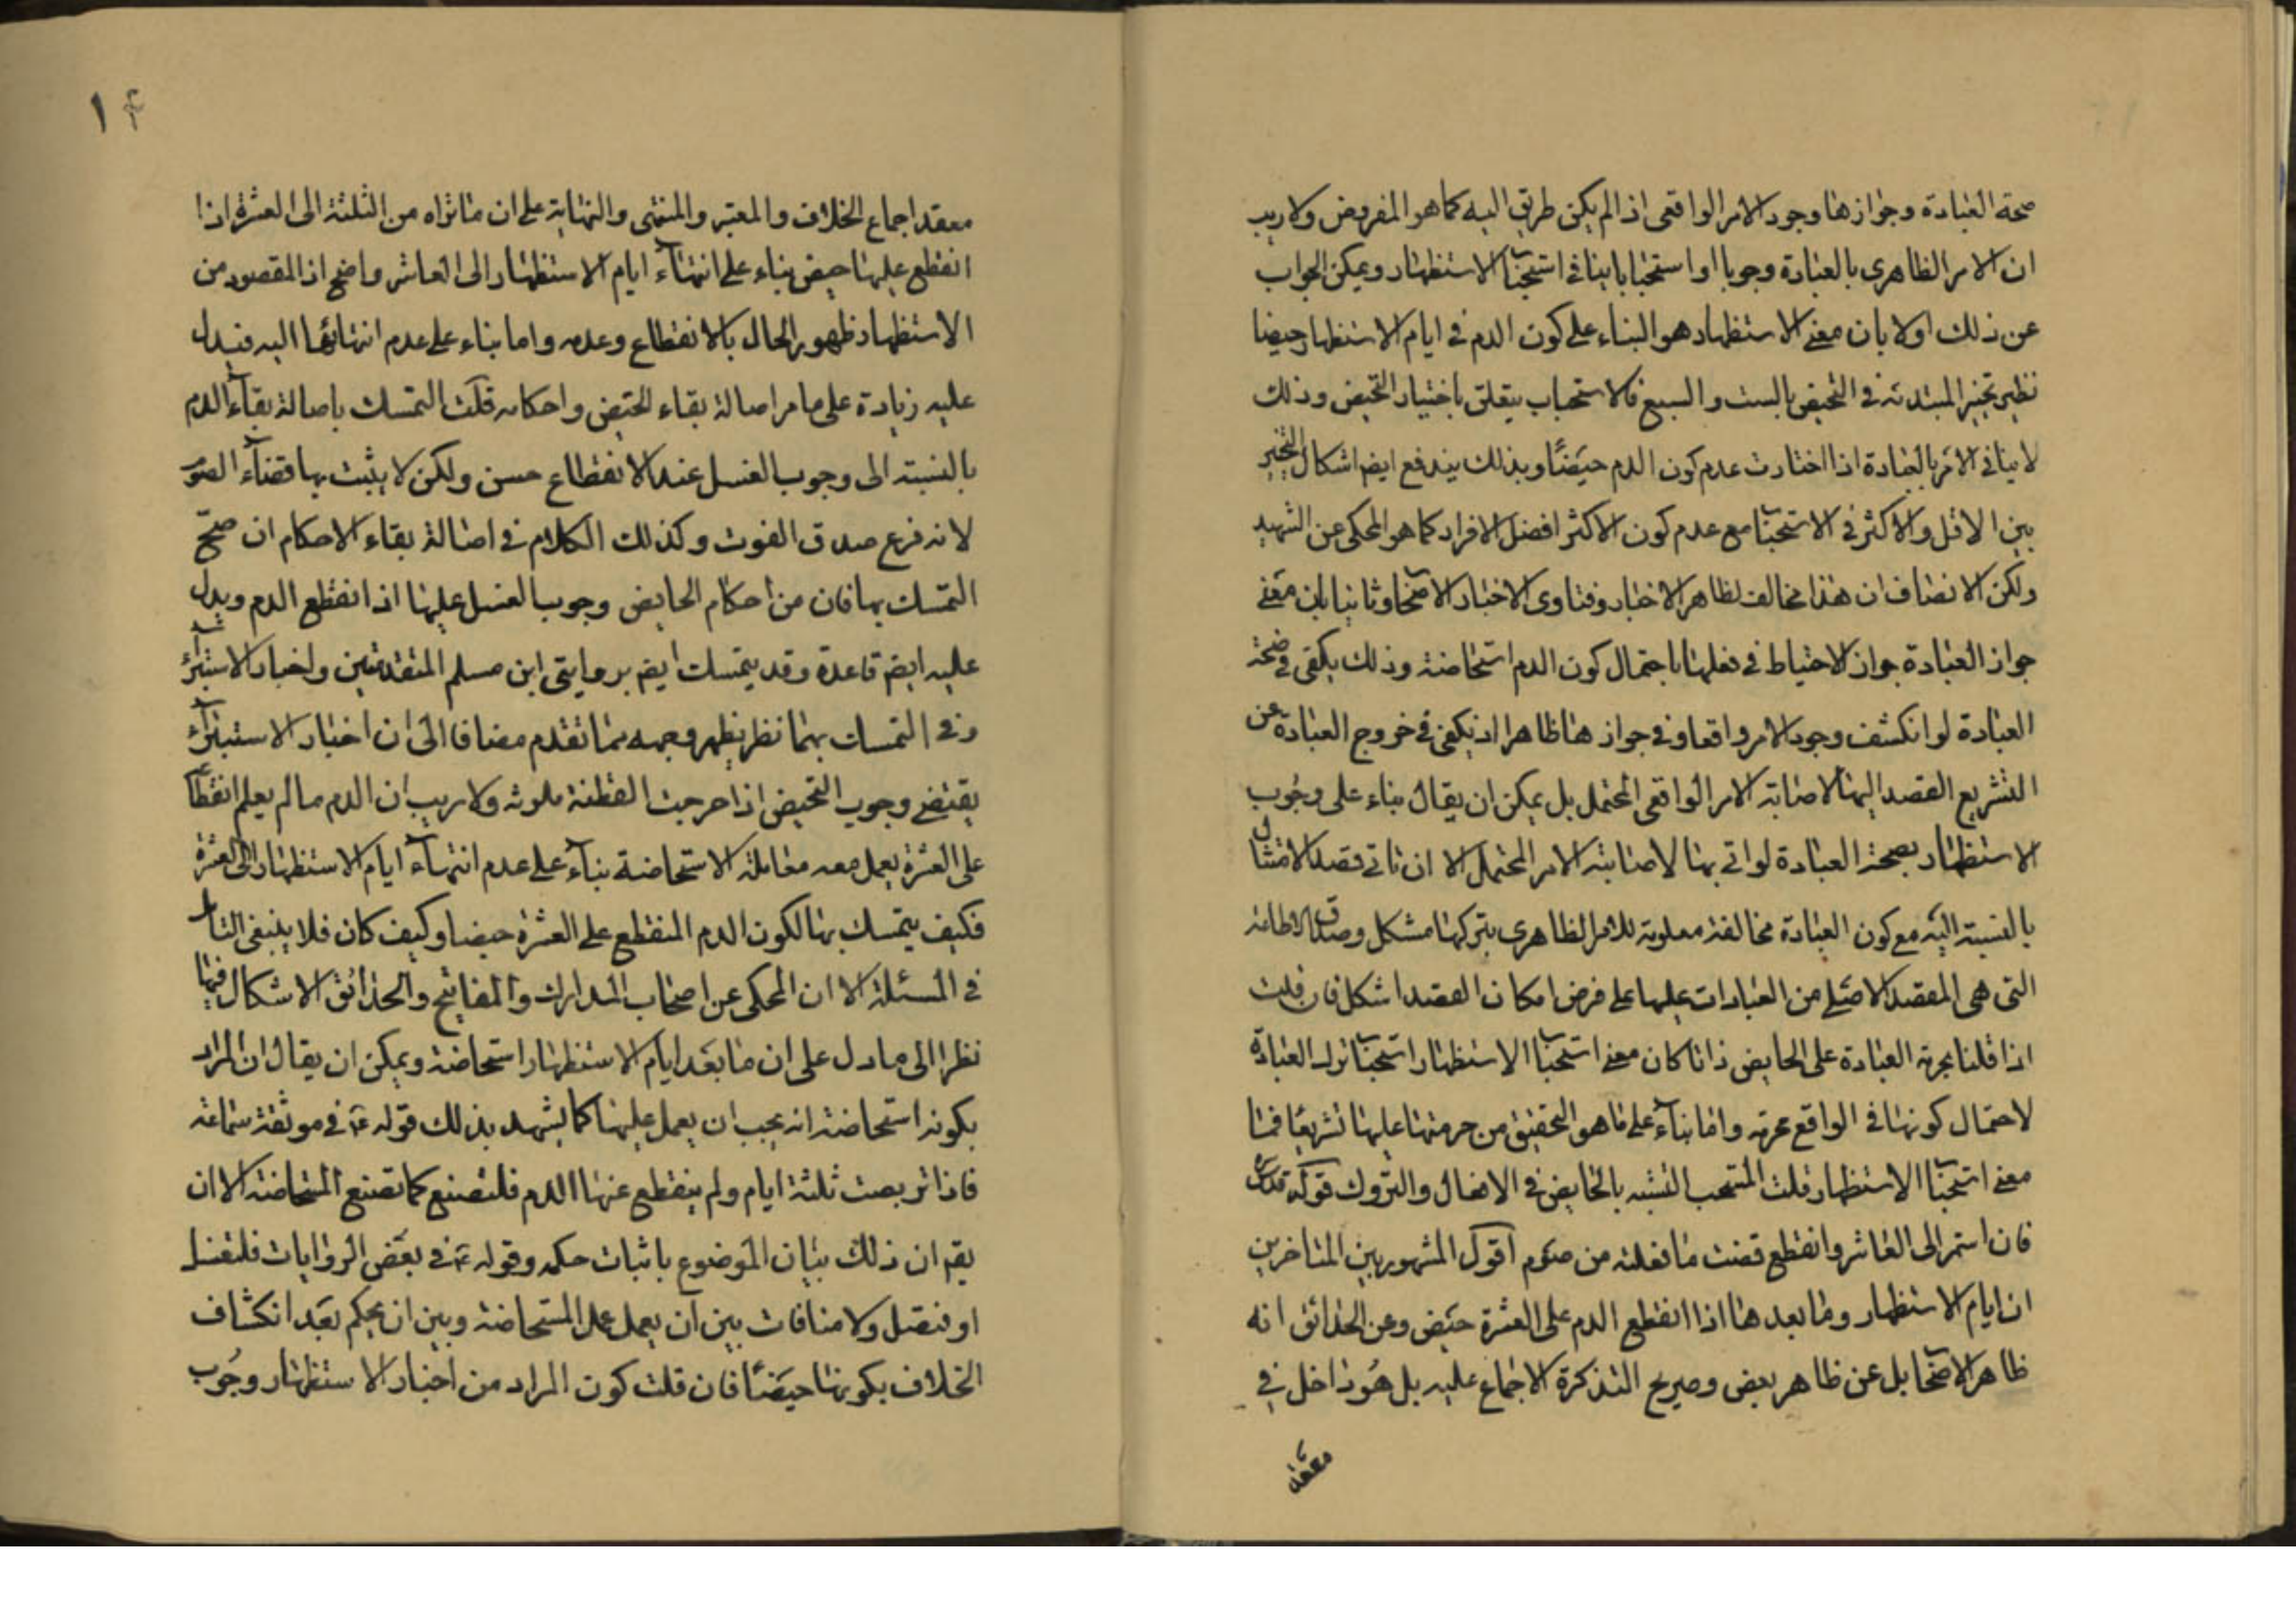 صحة العبادة وجوازها وجود الامر الواقعى اذ لم يكن طريق اليه كما هو المفروض ولا ريب
ان الامر الظاهرى بالعبادة وجوبا او استحبابا ينافى استحباب الاستظهار ويمكن الجواب
عن ذلك اولا بان معنى الاستظهار هو البناء على كون الدم فى ايام الاستظهار حيضا
نظير تخيير المبتدئة فى التحيض بالست والسبع فالاستحباب يتعلق باختيار التحيض وذلك
لا ينافى الامر بالعبادة اذا اختارت عدم كون الدم حيضًا وبذلك يندفع ايض اشكال التخيير
بين الاقل والاكثر فى الاستحباب مع عدم كون الاكثر افضل الافراد كما هو المحكى عن الشهيد
ولكن الانصاف ان هذا مخالف لظاهر الاخبار وفتاوى الاخبار الاصحاب وثانيا بان معنى
جواز العبادة جواز الاحتياط فى فعلها باحتمال كون الدم استحاضة وذلك يكفى فى صحة
العبادة لو انكشف وجود الامر واقعا وفى جوازها ظاهرا اذ يكفى فى خروج العبادة عن
التشريع القصد اليها لاصابة الامر الواقعى المحتمل بل يمكن ان يقال بناء على وجوب
الاستظهار بصحة العبادة لو اتى بها لاصابته الامر المحتمل الا ان تاتى قصد الامتثال
بالنسبة اليه مع كون العبادة مخالفة معلومة للامر الظاهرى بتركها مشكل وصدق الاطاعة
التى هى المقصد الاصلى من العبادات عليها على فرض امكان القصد اشكل فان قلت
اذا قلنا بحرمة العبادة على الحايض ذاتا كان معنى استحباب الاستظهار استحباب ترك العبادة
لاحتمال كونها فى الواقع محرمة واما بناء على ما هو التحقيق من حرمتها عليها تشريعًا فما
معنى استحباب الاستظهار قلت المستحب التشبه بالحايض فى الافعال والتروك قوله قدس سره
فان استمر الى العاشر وانقطع قضت ما فعلته من صوم اقول المشهور بين المتاخرين
ان ايام الاستظهار وما بعدها اذا انقطع الدم على العشرة حيض وعن الحدائق انه
ظاهر الاصحاب بل عن ظاهر بعض وصريح التذكرة الاجماع عليه بل هو داخل فى
معقد
١۴
معقد اجماع الخلاف والمعتبر والمنتهى والنهاية على ان ما تراه من الثلثة الى العشرة اذا
انقطع عليها حيض بناء على انتهاء ايام الاستظهار الى العاشر واضح اذ المقصود من
الاستظهار ظهور الحال بالانقطاع وعدمه واما بناء على عدم انتهائها اليه فيدل
عليه زيادة على ما مر اصالة بقاء الحيض واحكامه قلت التمسك باصالة بقاء الدم
بالنسبة الى وجوب الغسل عند الانقطاع حسن ولكن لا يثبت بها قضاء الصوم
لانه فرع صدق الفوت وكذلك الكلام فى اصالة بقاء الاحكام ان صح
التمسك بها فان من احكام الحايض وجوب الغسل عليها اذا انقطع الدم ويدل
عليه ايض قاعدة وقد يتمسك ايض بروايتى ابن مسلم المتقدمتين واخبار الاستبراء
وفى التمسك بهما نظر يظهر وجهه مما تقدم مضافا الى ان اخبار الاستبراء
يقتضى وجوب التحيض اذا خرجت القطنة ملوثة ولا ريب ان الدم ما لم يعلم انقطاعه
على العشرة يعمل معه معاملة الاستحاضة بناء على عدم انتهاء ايام الاستظهار الى العشرة
فكيف يتمسك بها لكون الدم المنقطع على العشرة حيضا وكيف كان فلا ينبغى التامل
فى المسئلة الا ان المحكى عن اصحاب المدارك والمفاتيح والحدائق الاشكال فيها
نظرا الى ما دل على ان ما بعد ايام الاستظهار استحاضة ويمكن ان يقال ان المراد
بكونه استحاضة انه يجب ان يعمل عليها كما يشهد بذلك قوله ع فى موثقة سماعة
فاذا تربصت ثلثة ايام ولم ينقطع عنها الدم فلتصنع كما تصنع المستحاضة الا ان
يقم ان ذلك بيان الموضوع باثبات حكمه وقوله ع فى بعض الروايات فلتغتسل
او فتصل ولا منافات بين ان يعمل عمل المستحاضة وبين ان يحكم بعد انكشاف
الخلاف بكونها حيضًا فان قلت كون المراد من اخبار الاستظهار وجوب